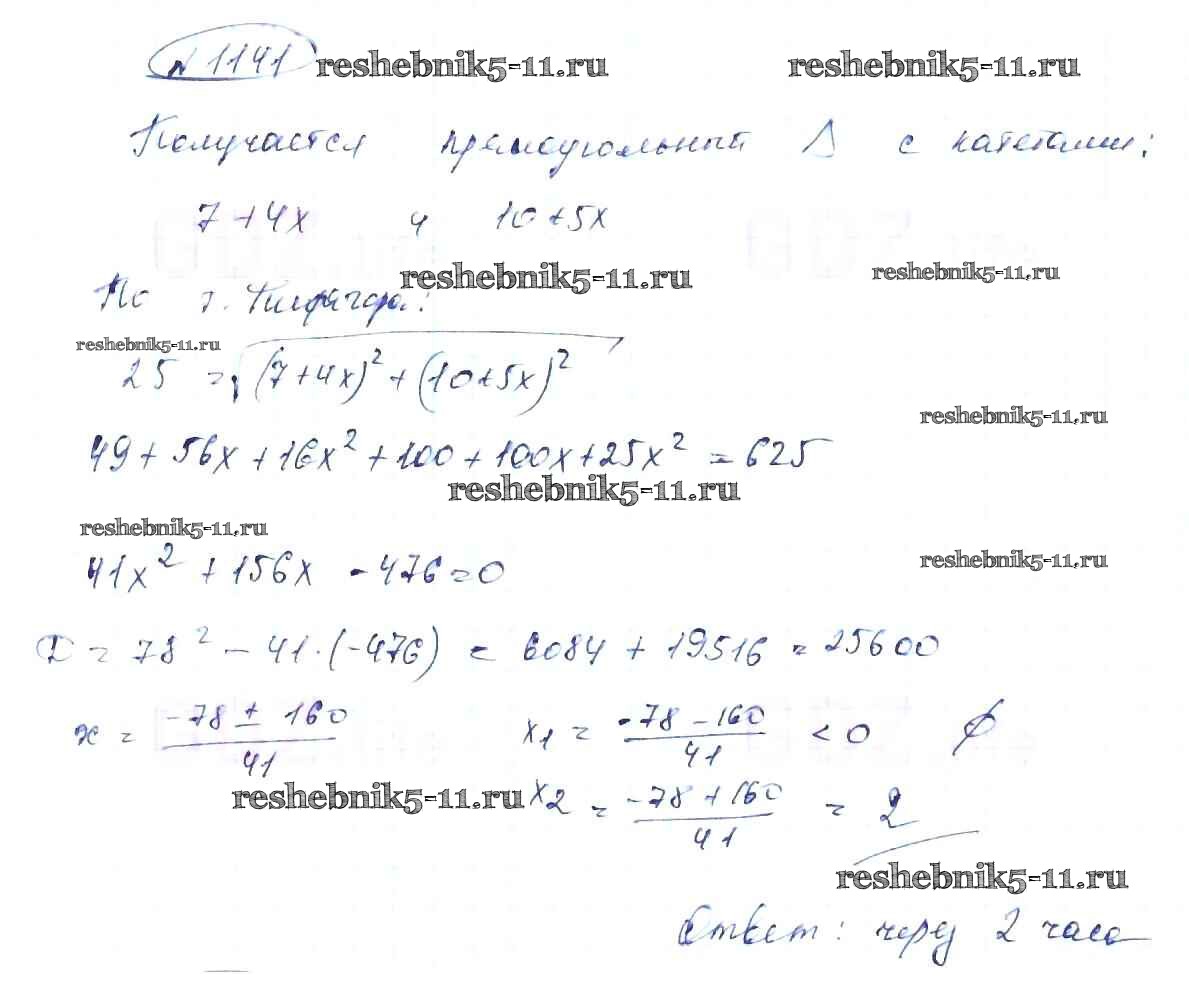 № 1141 reshebnik5-11.ru reshebnik5-11.ru
Получается прямоугольный Δ с катетами:
7+4x и 10+5x
reshebnik5-11.ru reshebnik5-11.ru
По т. Пифагора:
reshebnik5-11.ru
25 = √(7+4x)² + (10+5x)²
reshebnik5-11.ru
49 + 56x + 16x² + 100 + 100x + 25x² = 625
reshebnik5-11.ru
reshebnik5-11.ru
41x² + 156x - 476 = 0
reshebnik5-11.ru
D = 78² - 41·(-476) = 6084 + 19516 = 25600
x = (-78 ± 160)/41 x1 = (-78 - 160)/41 < 0 ∅
reshebnik5-11.ru x2 = (-78 + 160)/41 = 2
reshebnik5-11.ru
Ответ: через 2 часа